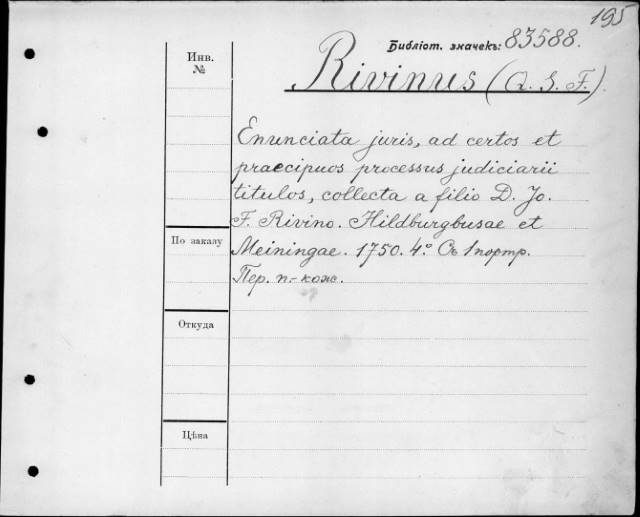 195
Библіот. значекъ: 83588.
Инв. №
Rivinus (Q. S. F.).
Enunciata juris, ad certos et
praecipuos processus judiciarii
titulos, collecta a filio D. Jo.
F. Rivino. Hildburgbusae et
По заказу
Meiningae. 1750. 4.° Съ 1 портр.
Пер. п.-кож.
Откуда
Цѣна